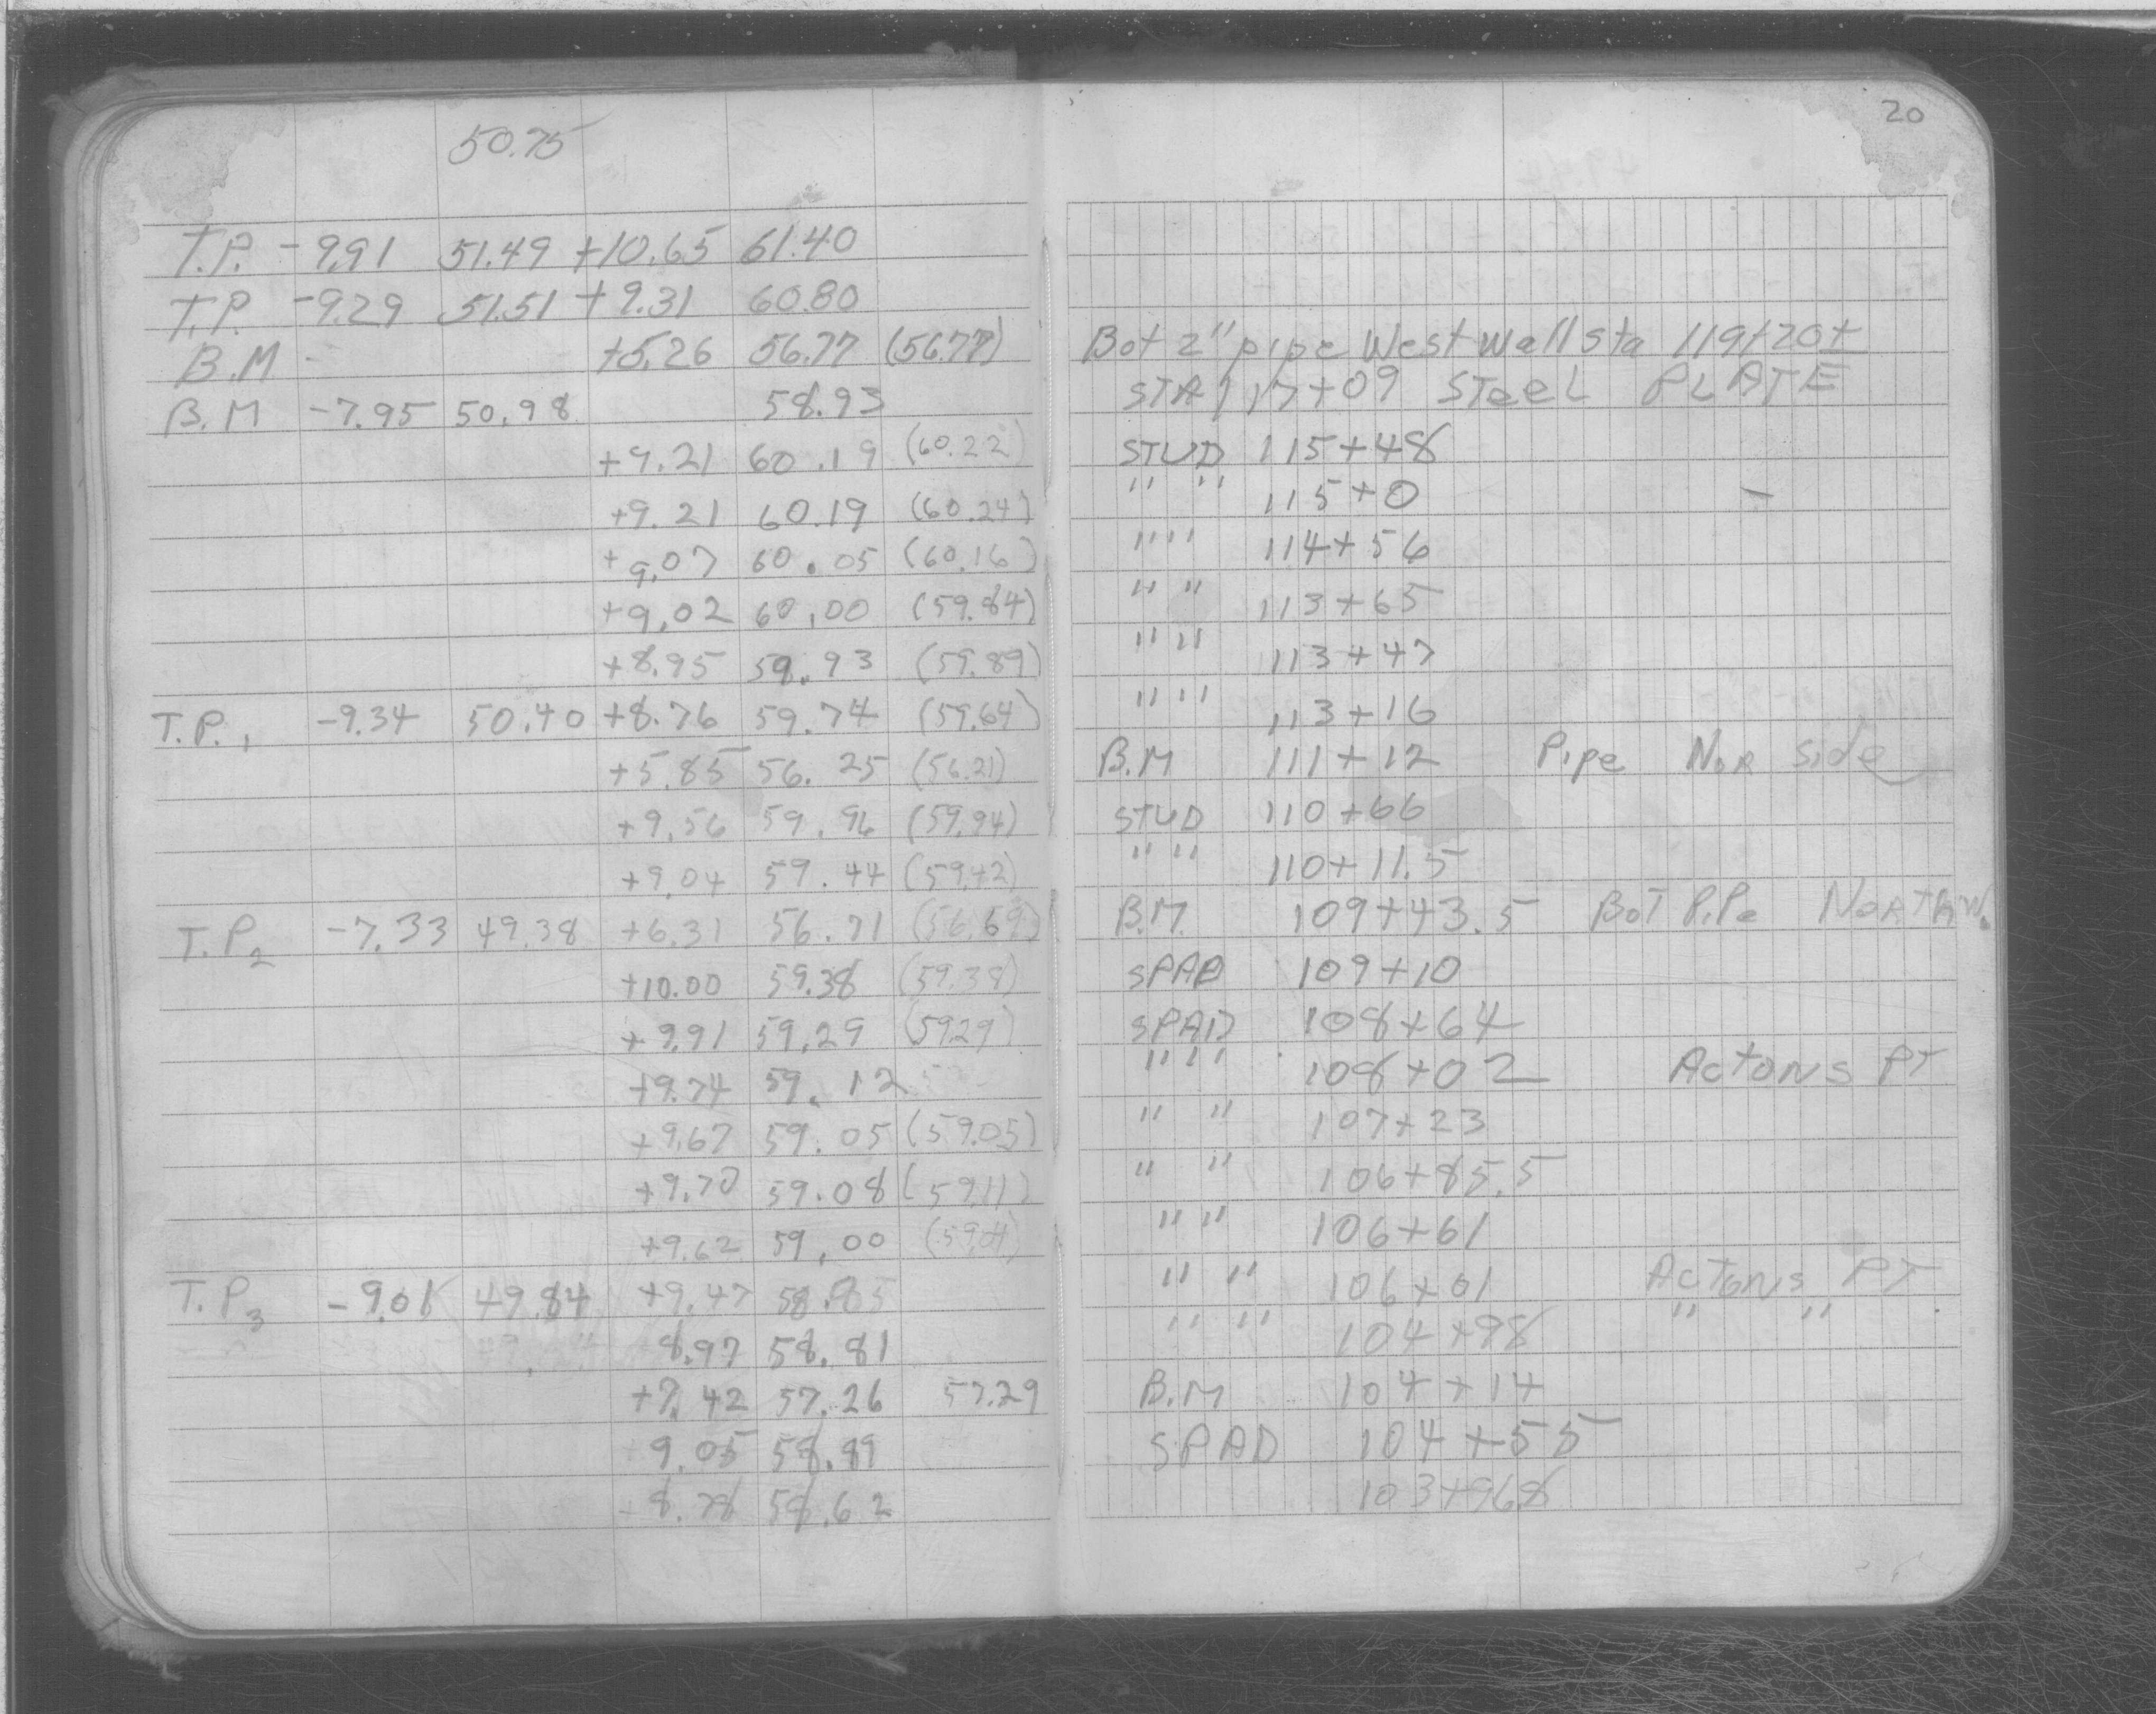 20
50.75
T.P. -9.91 51.49 +10.65 61.40
T.P. -9.29 51.51 +9.31 60.80
B.M - +5.26 56.77 (56.77) Bot 2" pipe West wall sta 119+20±
B.M -7.95 50.98 58.93 STA 117+09 STEEL PLATE
+9.21 60.19 (60.22) STUD 115+48
+9.21 60.19 (60.24) " " 115+0 -
+9.07 60.05 (60.16) " " 114+56
+9.02 60.00 (59.84) " " 113+65
+8.95 59.93 (59.89) " " 113+47
T.P.1 -9.34 50.40 +8.76 59.74 (59.64) " " 113+16
+5.85 56.25 (56.21) B.M 111+12 Pipe Nor side
+9.56 59.96 (59.94) STUD 110+66
+9.04 59.44 (59.42) " " 110+11.5
T.P2 -7.33 49.38 +6.31 56.71 (56.69) B.M. 109+43.5 BoT PiPe NorTh W.
+10.00 59.38 (59.38) SPAD 109+10
+9.91 59.29 (59.29) SPAD 108+64
+9.74 59.12 " " 108+02 ActONS PT
+9.67 59.05 (59.05) " " 107+23
+9.70 59.08 (59.11) " " 106+85.5
+9.62 59.00 (59.01) " " 106+61
T.P3 -9.01 49.84 +9.47 58.85 " " 106+01 ActONS PT
8.97 58.81 " " 104+98 " "
+7.42 57.26 57.29 B.M 104+14
9.05 58.89 SPAD 104+55
8.78 58.62 103+968